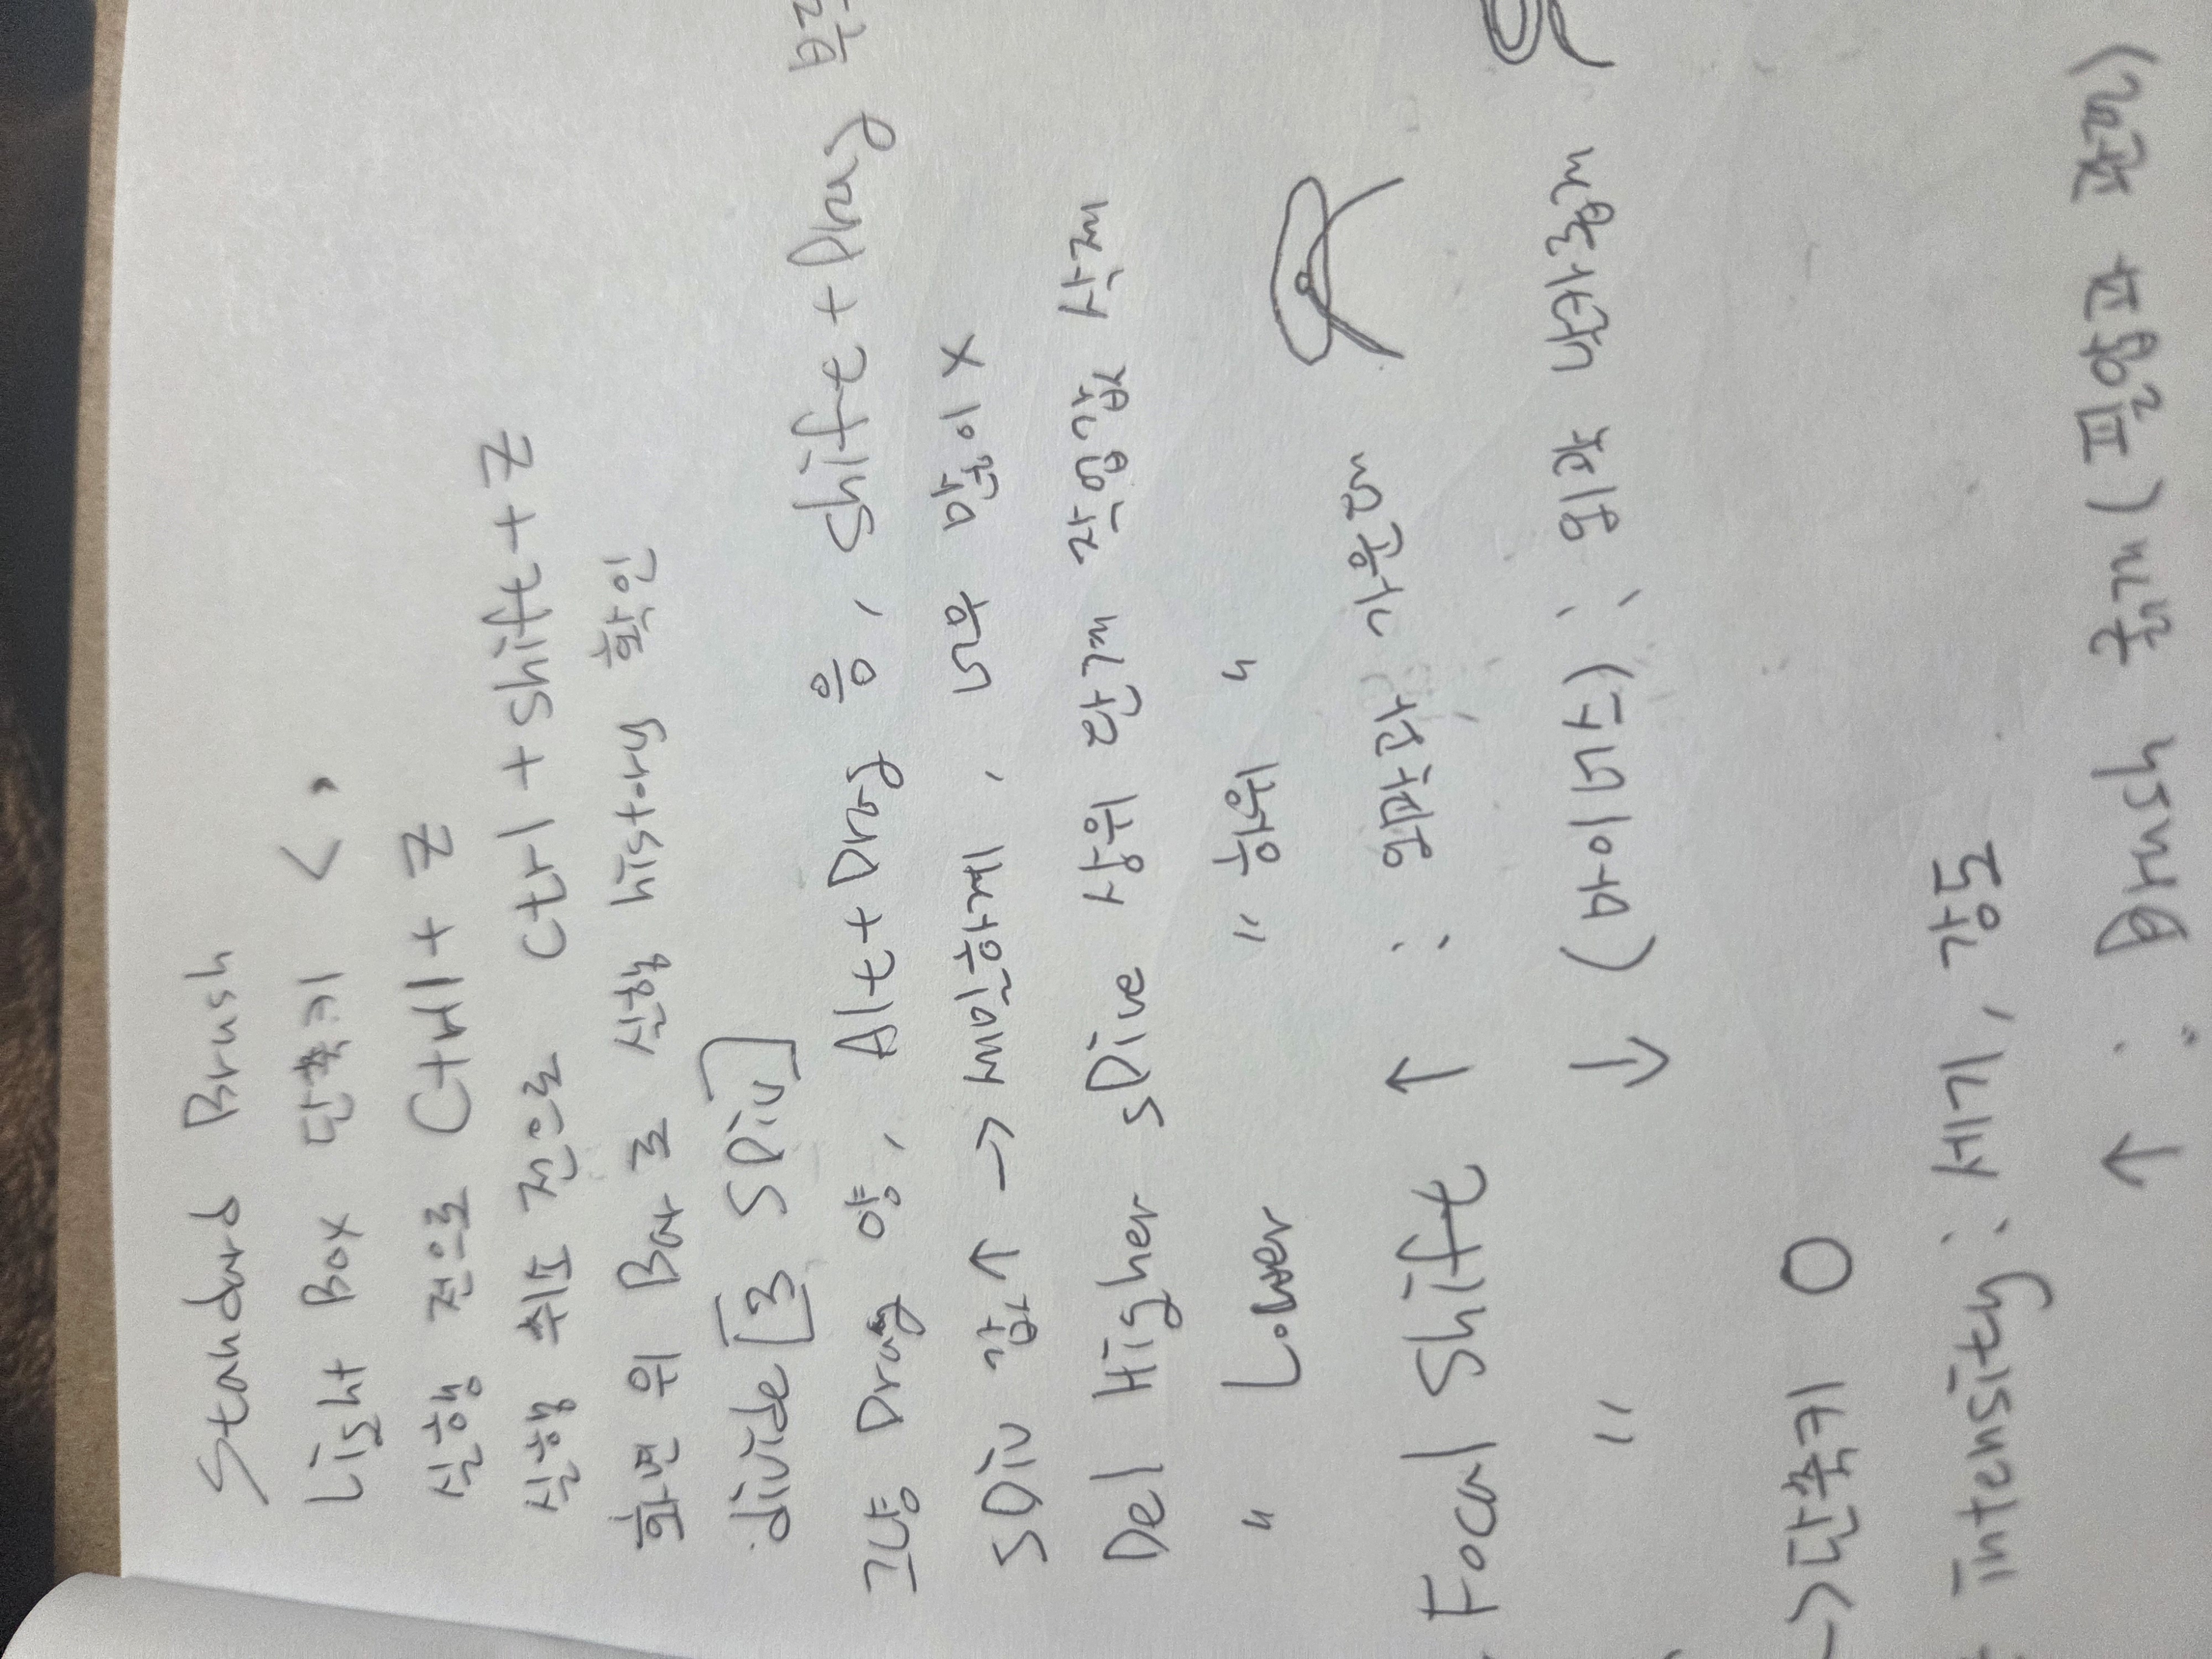 Standard Brush
Light Box 단축키 < ,
실행 전으로 Ctrl + Z
실행 취소 전으로 Ctrl + Shift + Z
화면 위 Bar로 실행 history 확인
divide [3 SDiv]
그냥 Drag 양, Alt + Drag 음, Shift + Drag
SDiv 값 ↑ → 세밀하게, 너무 많이 X
Del Higher SDive 상위 단계 작업값 삭제
" Lower " 하위 "
Focal Shift ↑ : 원찬다 가운데
" ↓ (마이너스) : 위치 나타날때
→ 단축키 O
intensity : 세기, 강도
↑ : Brush 굵게 (표현 관련)